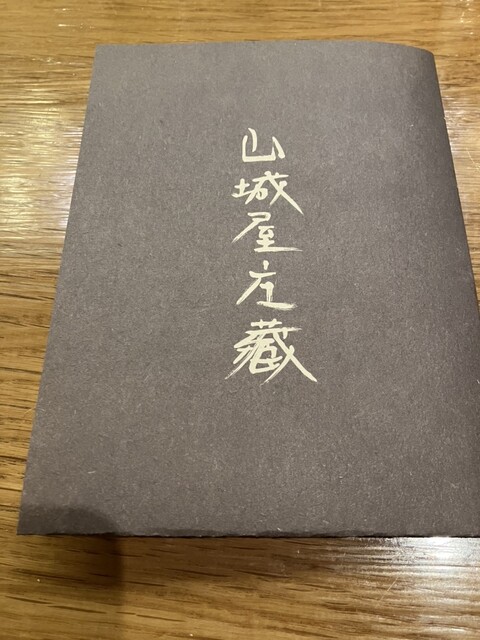 山城屋庄藏